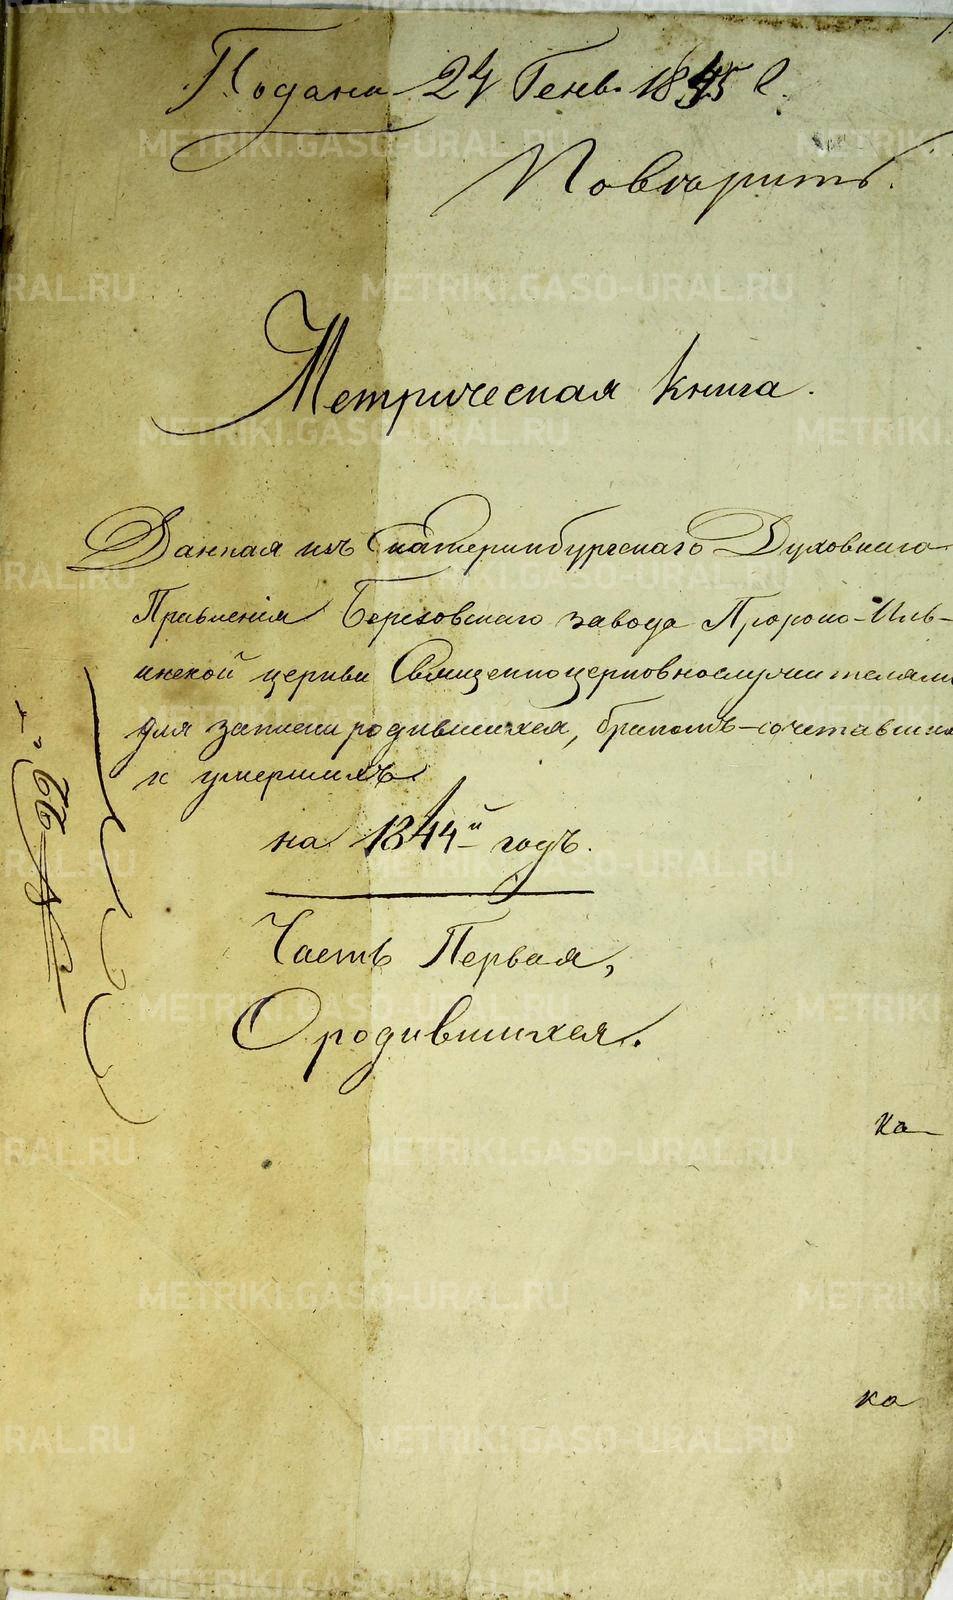 Подана 24 Генв. 1845 г.
Повторить.
Метрическая книга.
Данная изъ Екатеринбургскаго Духовнаго
Правленія Березовскаго завода Пророко-Иль-
инской церкви Священноцерковнослужителямъ
для записи родившихся, бракомъ-сочетавшихся
и умершихъ
на 1844й годъ.
Часть Первая,
О родившихся.
ка
ка
METRIKI.GASO-URAL.RU